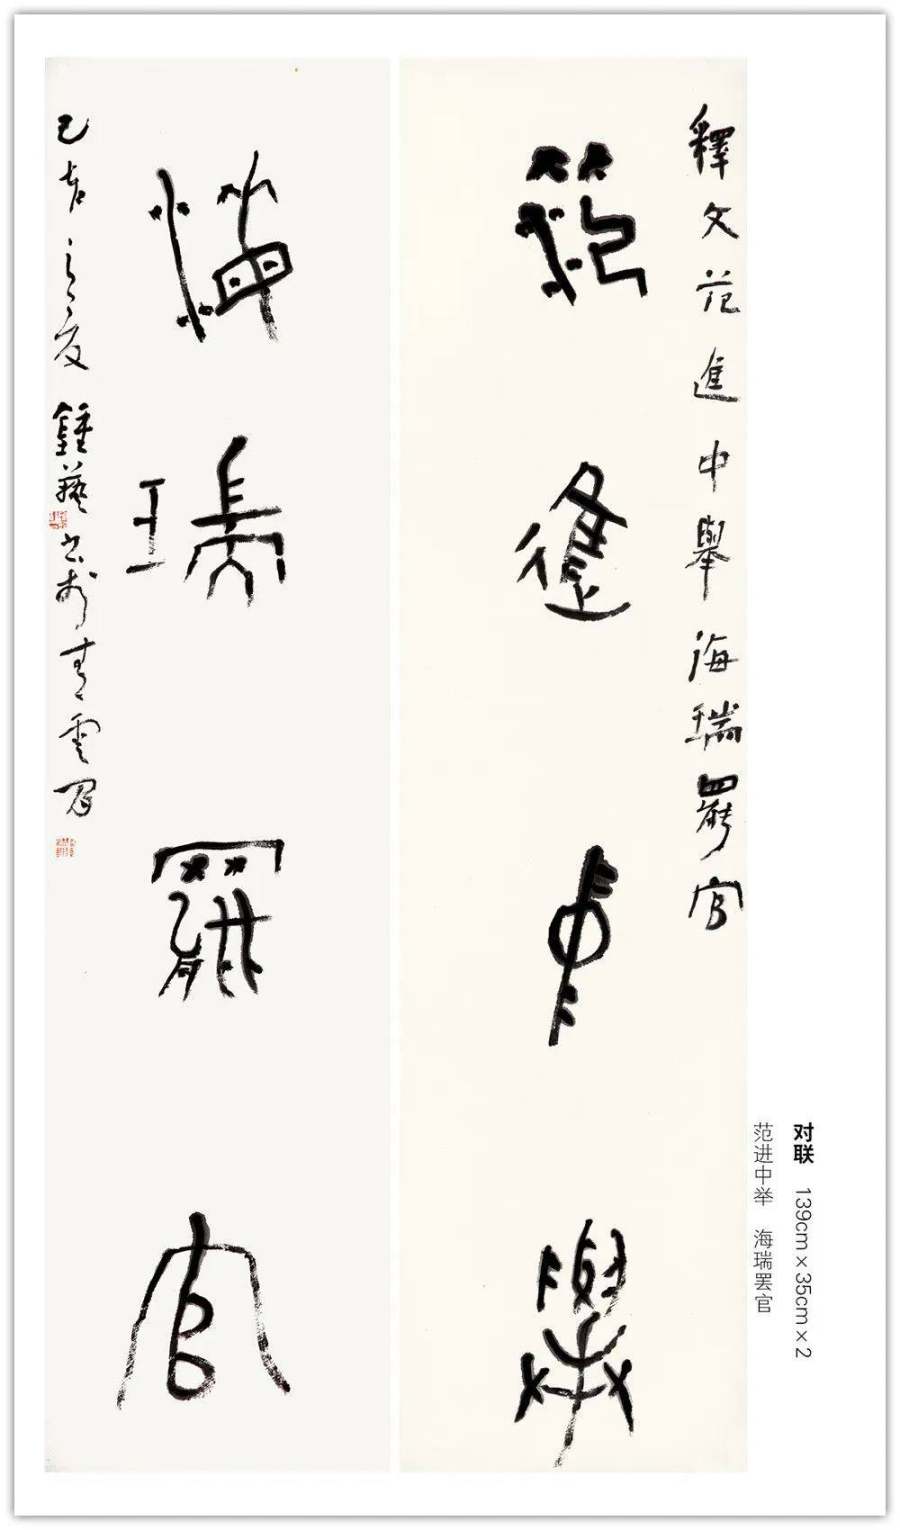 对联 139cm×35cm×2
范进中举 海瑞罢官
釋文范進中舉海瑞罷官
范進中舉
海瑞罷官
鍾藝